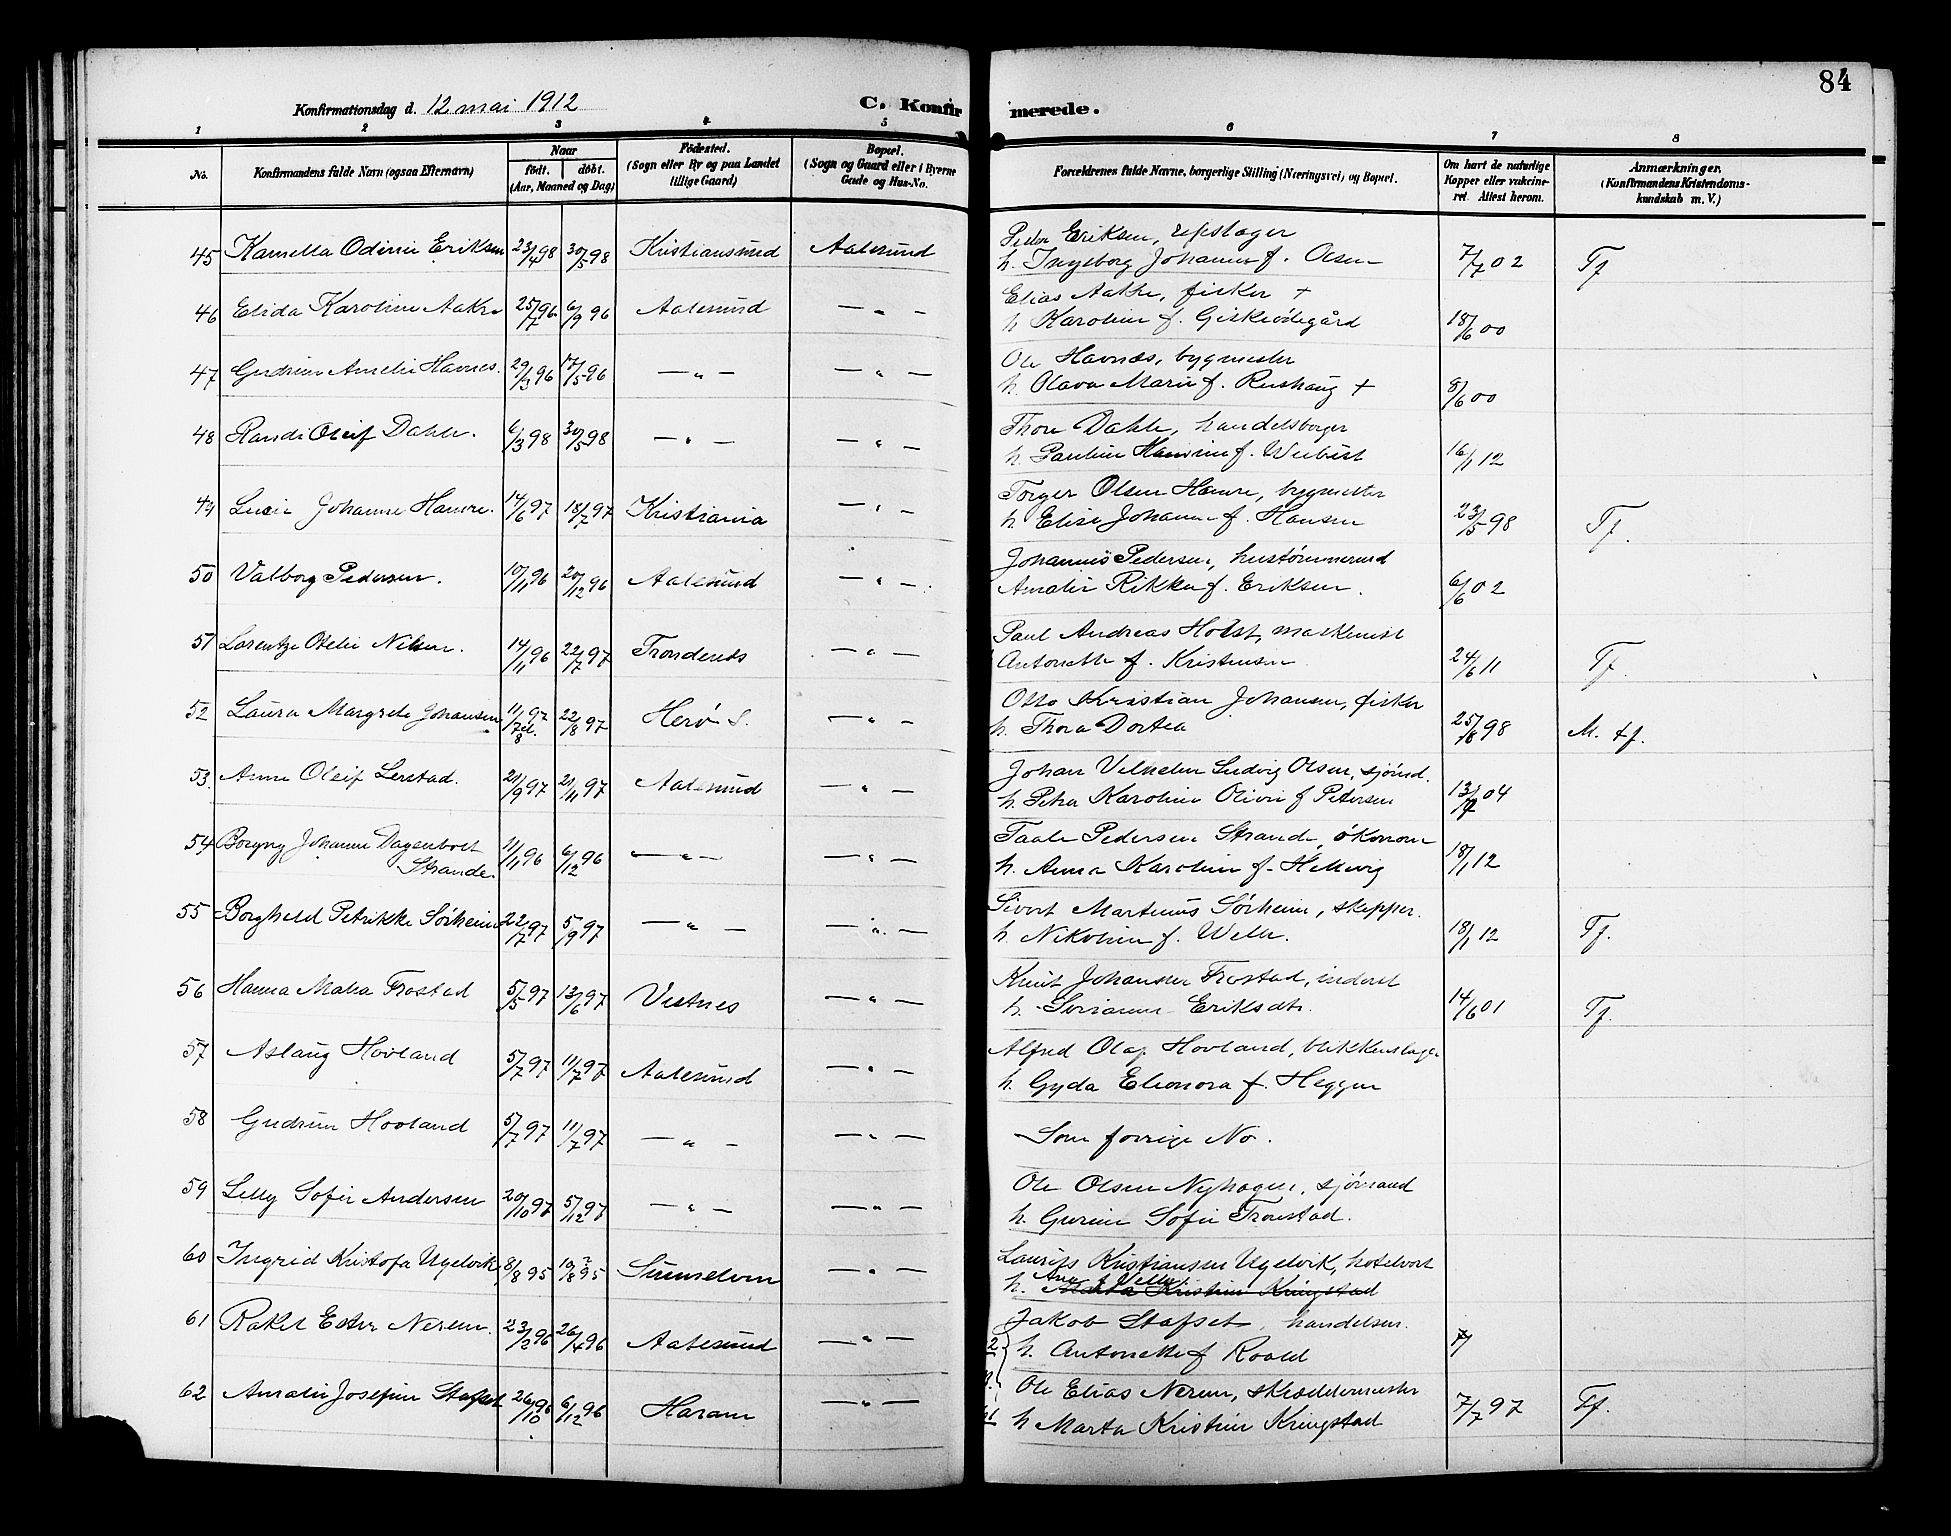 84
Konfirmationsdag d. 12 mai 1912
C. Konfirmerede.
1 2 3 4 5 6 7 8
No.
Konfirmandens fulde Navn (ogsaa Efternavn)
Naar
födt. döbt.
(Aar, Maaned og Dag)
Födested.
(Sogn eller By og paa Landet
tillige Gaard)
Bopæl.
(Sogn og Gaard eller i Byerne
Gade og Hus-No.
Forældrenes fulde Navne, borgerlige Stilling (Næringsvei) og Bopæl.
Om havt de naturlige
Kopper eller vakcine-
ret. Attest herom.
Anmærkninger.
(Konfirmandens Kristendoms-
kundskab m. V.)
45 Kamella Odinie Eriksen 23/4 98 30/5 98 Kristiansund Aalesund Peder Eriksen, repslager
h. Ingeborg Johanne f. Olsen 7/7 02 Tf
46 Elida Karoline Aakre 25/7 96 6/9 96 Aalesund — " — Elias Aakre, fisker +
h. Karoline f. Giskeødegård 18/6 00
47 Gudrun Amalie Havnes. 29/3 96 17/5 96 — " — — " — Ole Havnæs, bygmester
h. Olava Marie f. Rushaug + 8/6 00
48 Randi Oleif Dahle. 6/3 98 30/5 98 — " — — " — Thore Dahle, handelsborger
h. Pauline f. 16/1 12
49 Johanne Hamre. 14/6 97 18/7 97 Kristiania — " — Torger Olsen Hamre, bygmester
h. Elise Johanne f. Hansen 23/5 98 Tf.
50 Valborg Pedersen. 10/11 96 20/12 96 Aalesund — " — Johannes Pedersen, hustømmermd
Amalie Rikke f. Eriksen. 6/6 02
51 Lorentze Otelie Nilsen. 14/11 96 22/7 97 Trondenes — " — Paul Andreas Holst, maskinist
Antonette f. Kristensen 24/6 11 Tf.
52 Laura Margrete Johansen 11/7 97 el. 8 22/8 97 Herö S. — " — Otto Kristian Johansen, fisker
h. Thora Dortea 25/8 98 M. tf.
53. Anna Oleif Lerstad. 21/9 97 21/11 97 Aalesund — " — Johan Vilhelm Ludvig Olsen, sjömd.
h. Petra Karoline Olivie f Petersen 13/7 04
54 Borgny Johanne Dagenbolt
Strande. 11/11 96 6/12 96 — " — — " — Taale Pedersen Strande, økonom
h. Anna Karoline f. Hellevig 18/1 12
55 Borghild Petrikke Sörheim 22/7 97 5/9 97 — " — — " — Sivert Martinus Sörheim, skipper.
h. Nikoline f. Welle. 18/1 12 Tf.
56 Hanna Malia Frostad 5/5 97 13/6 97 Vestnes — " — Knut Johansen Frostad, inderst
h. Sirianne Eriksdtr. 14/6 01 Tf.
57 Aslaug Hovland 5/7 97 11/7 97 Aalesund — " — Alfred Olaf Hovland, blikkenslager
h. Gyda Eleonora f. Heggen
58 Gudrun Hovland 5/7 97 11/7 97 — " — — " — Som forrige No.
59 Lelly Sofie Andersen 20/10 97 5/12 97 — " — — " — Ole Olsen Nyhagen, sjömand
h. Gurine Sofie Tronstad.
60 Ingrid Kristofa Ugelvik 8/8 95 10/8 95 ? Surendalen — " — Laurits Kristiansen Ugelvik, hotelvert
Ane f. Velle.
h. Marta Kristine Kringstad
61 Rakel Ester Nerem. 23/2 96 26/4 96 Aalesund — " — Jakob Stafset, handelsm.
h. Antonette f Roald 7/
62 Amalie Josefine Stafset 26/10 96 6/12 96 Haram — " — Ole Elias Nerem, skræddermester
h Marta Kristine Kringstad 7/7 97 Tf.